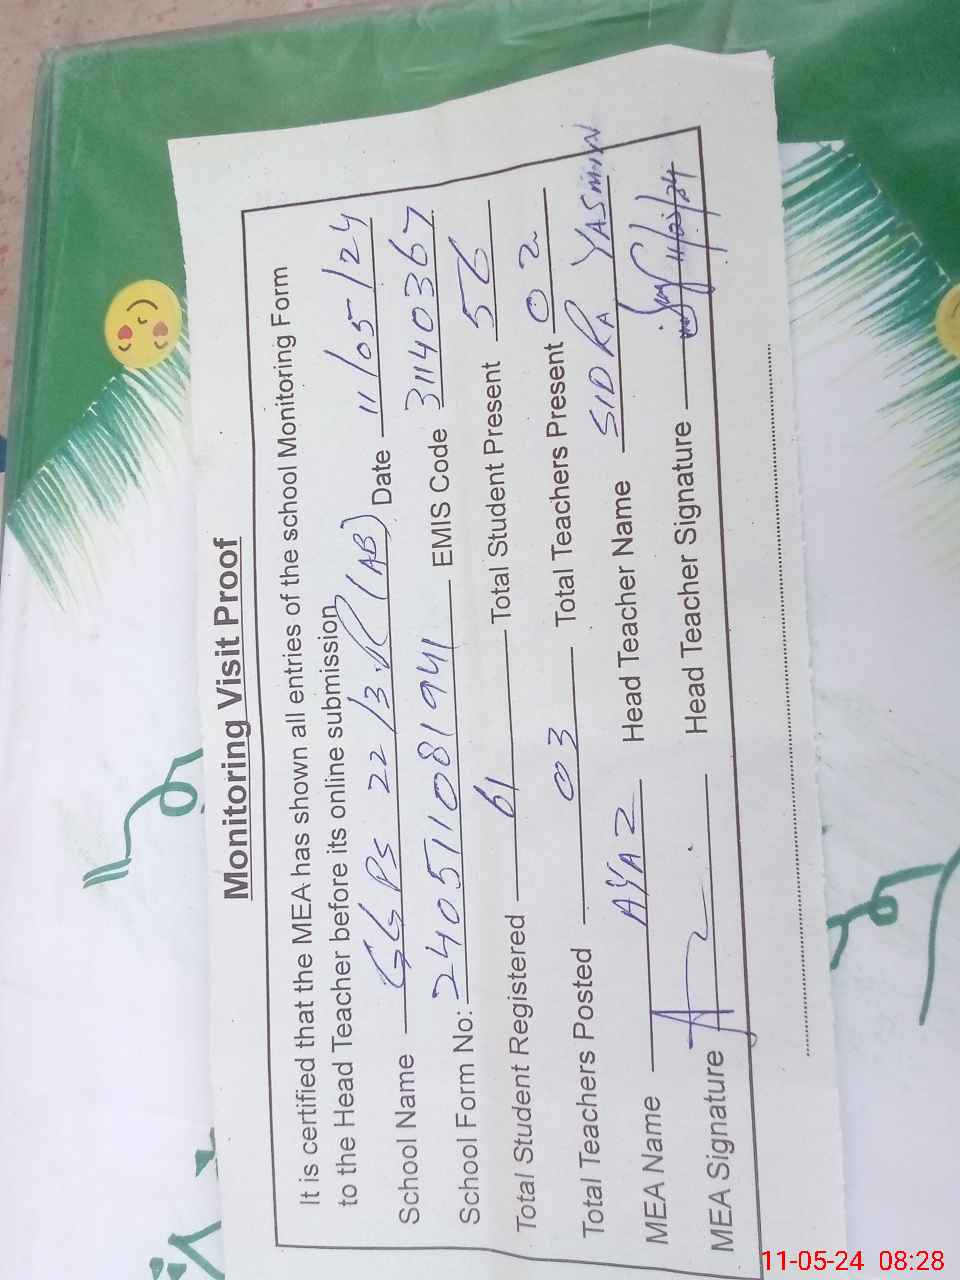 Monitoring Visit Proof
It is certified that the MEA has shown all entries of the school Monitoring Form
to the Head Teacher before its online submission
School Name GGPS 22/3.R(AB) Date 11/05/24
School Form No: 240511081941 EMIS Code 31140367
Total Student Registered 61 Total Student Present 56
Total Teachers Posted 03 Total Teachers Present 02
MEA Name AYAZ Head Teacher Name SIDRA YASMIN
MEA Signature Head Teacher Signature
11-05-24 08:28